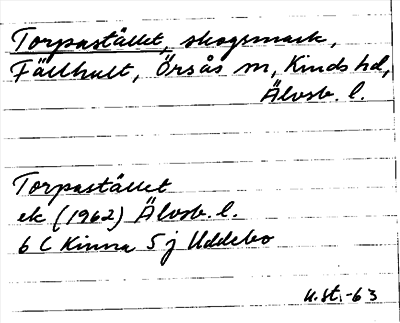 Torpastället, skogsmark,
Fällhult, Örsås sn, Kinds hd,
Älvsb. l.
Torpastället
ek (1962) Älvsb. l.
6 C Kinna 5 j Uddebo
u.st.-63